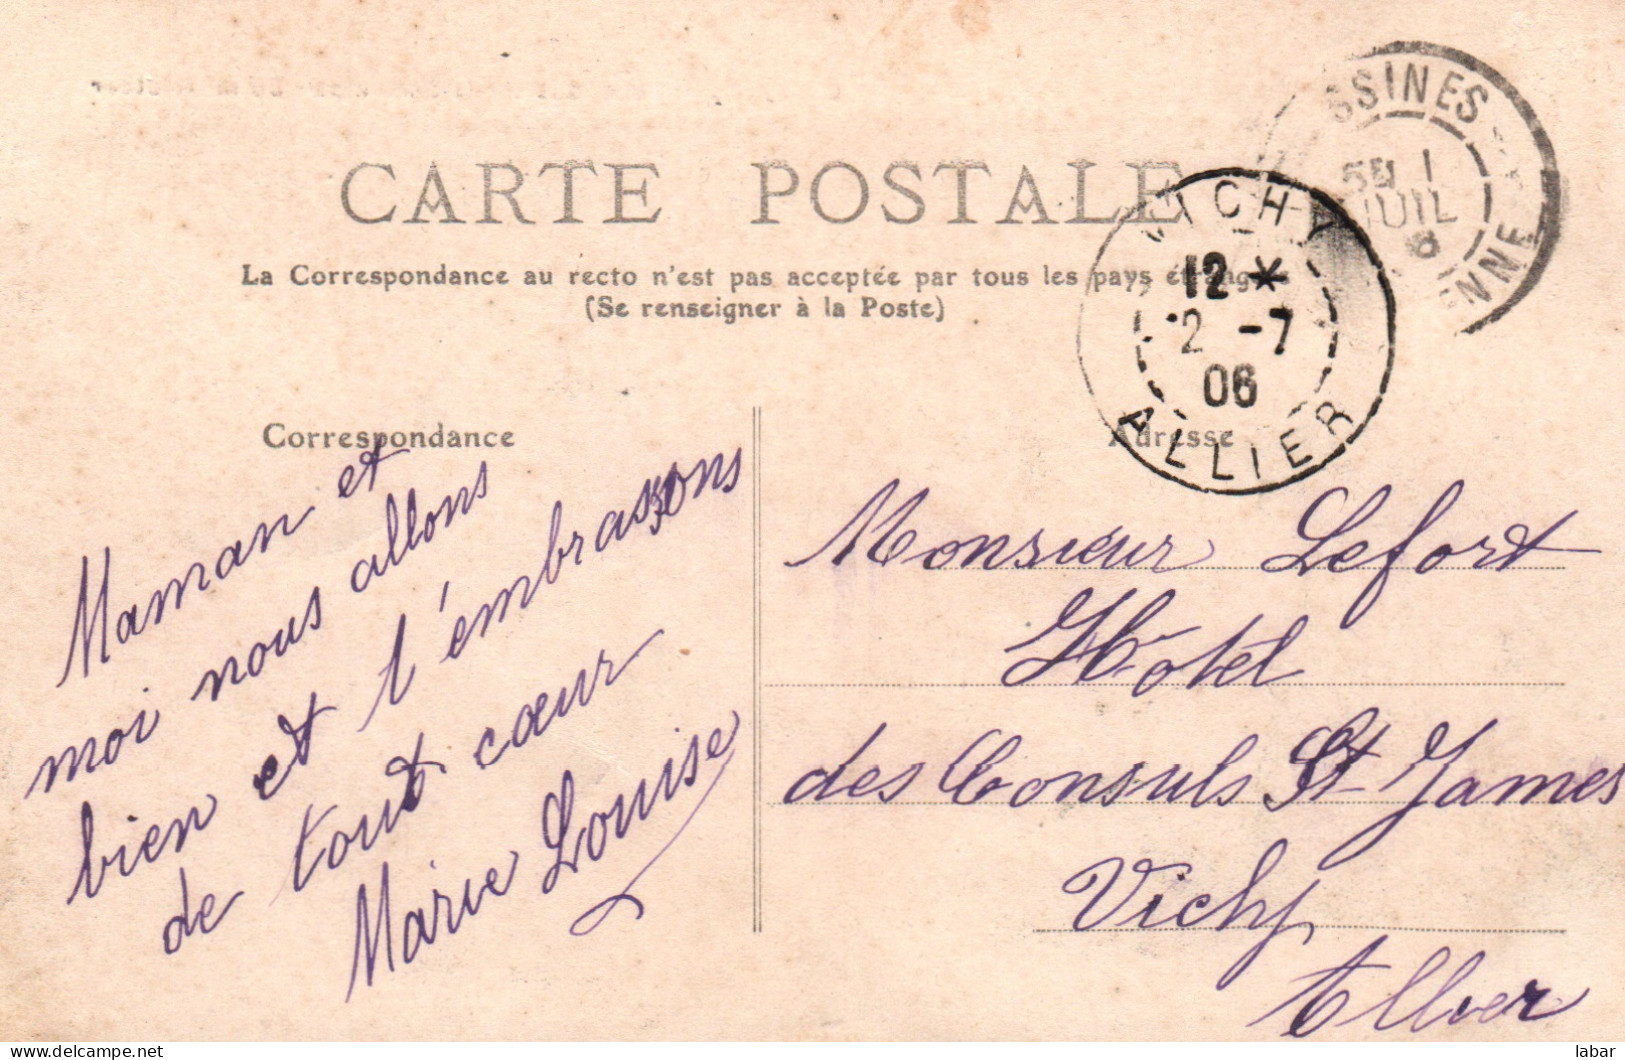 CARTE POSTALE
La Correspondance au recto n'est pas acceptée par tous les pays étrangers
(Se renseigner à la Poste)
SSINES
5E 1
JUIL
NNE
VICHY
12 *
2 -7
06
ALLIER
Correspondance
Maman et
moi nous allons
bien et t'embrassons
de tout cœur
Marie Louise
Adresse
Monsieur Lefort
Hotel
des Consuls St James
Vichy
Allier
delcampe.net
labar